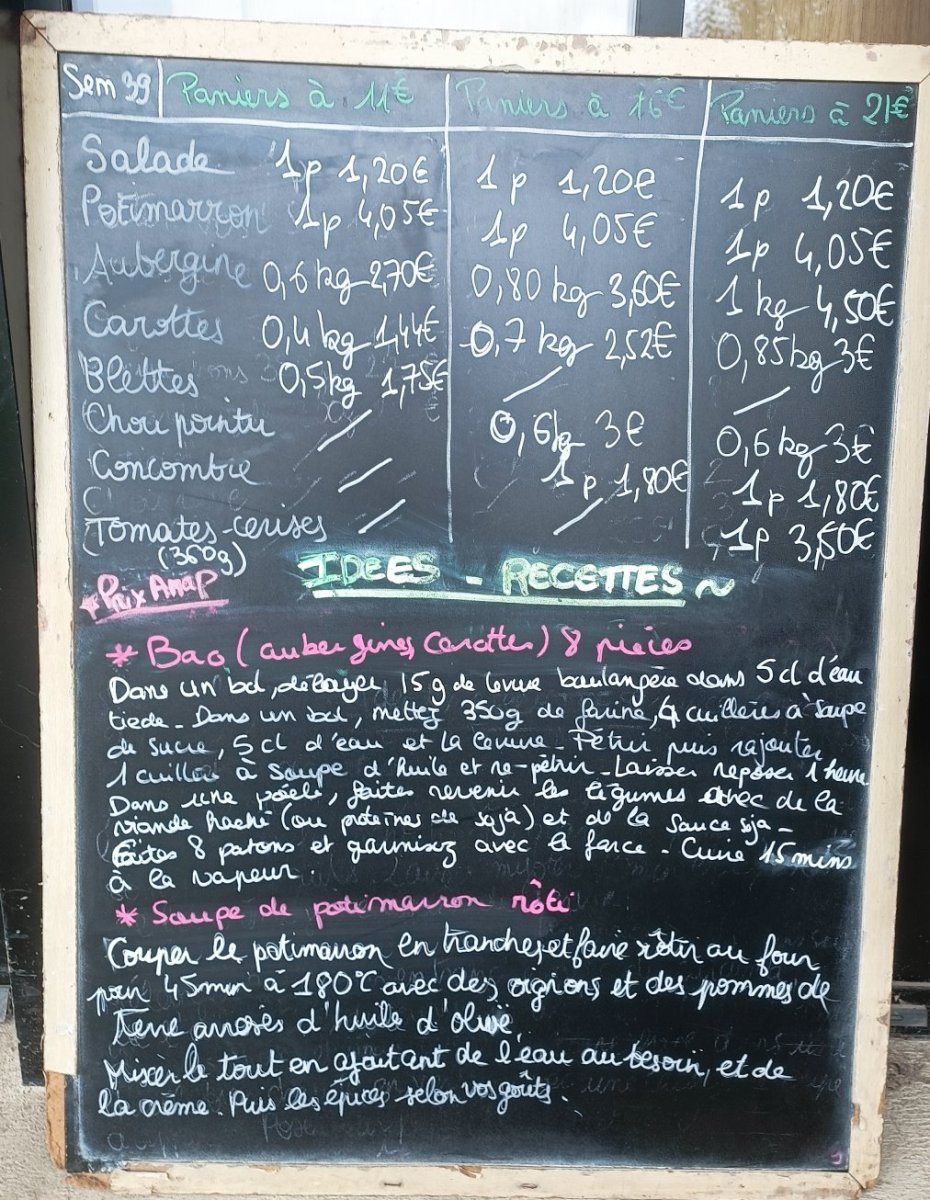 Sem 39 Paniers à 11€ Paniers à 16€ Paniers à 21€
Salade 1p 1,20€ 1p 1,20€ 1p 1,20€
Potimarron 1p 4,05€ 1p 4,05€ 1p 4,05€
Aubergine 0,6 kg 2,70€ 0,80 kg 3,60€ 1 kg 4,50€
Carottes 0,4 kg 1,44€ 0,7 kg 2,52€ 0,85kg 3€
Blettes 0,5kg 1,75€ / /
Chou pointu / 0,6k 3€ 0,6 kg 3€
Concombre / 1p 1,80€ 1p 1,80€
Tomates-cerises / / 1p 3,50€
(350g)
* Prix AMAP
IDEES - RECETTES ~
* Bao (aubergines, carottes) 8 pièces
Dans un bol, délayer 15g de levure boulangère dans 5 cl d'eau
tiède - Dans un bol, mettez 350g de farine, 4 cuillères à soupe
de sucre, 5 cl d'eau et la levure - Pétrir puis rajouter
1 cuillère à soupe d'huile et re-pétrir - Laisser reposer 1 heure
Dans une poële, faites revenir les légumes avec de la
viande haché (ou protéines de soja) et de la sauce soja -
Faites 8 patons et garnissez avec la farce - Cuire 15 mins
à la vapeur.
* Soupe de potimarron rôti
Couper le potimarron en tranches, et faire rôtir au four
pour 45min à 180°C avec des oignons et des pommes de
terre arrosés d'huile d'olive.
Mixer le tout en ajoutant de l'eau au besoin, et de
la crème. Puis les épices selon vos goûts.